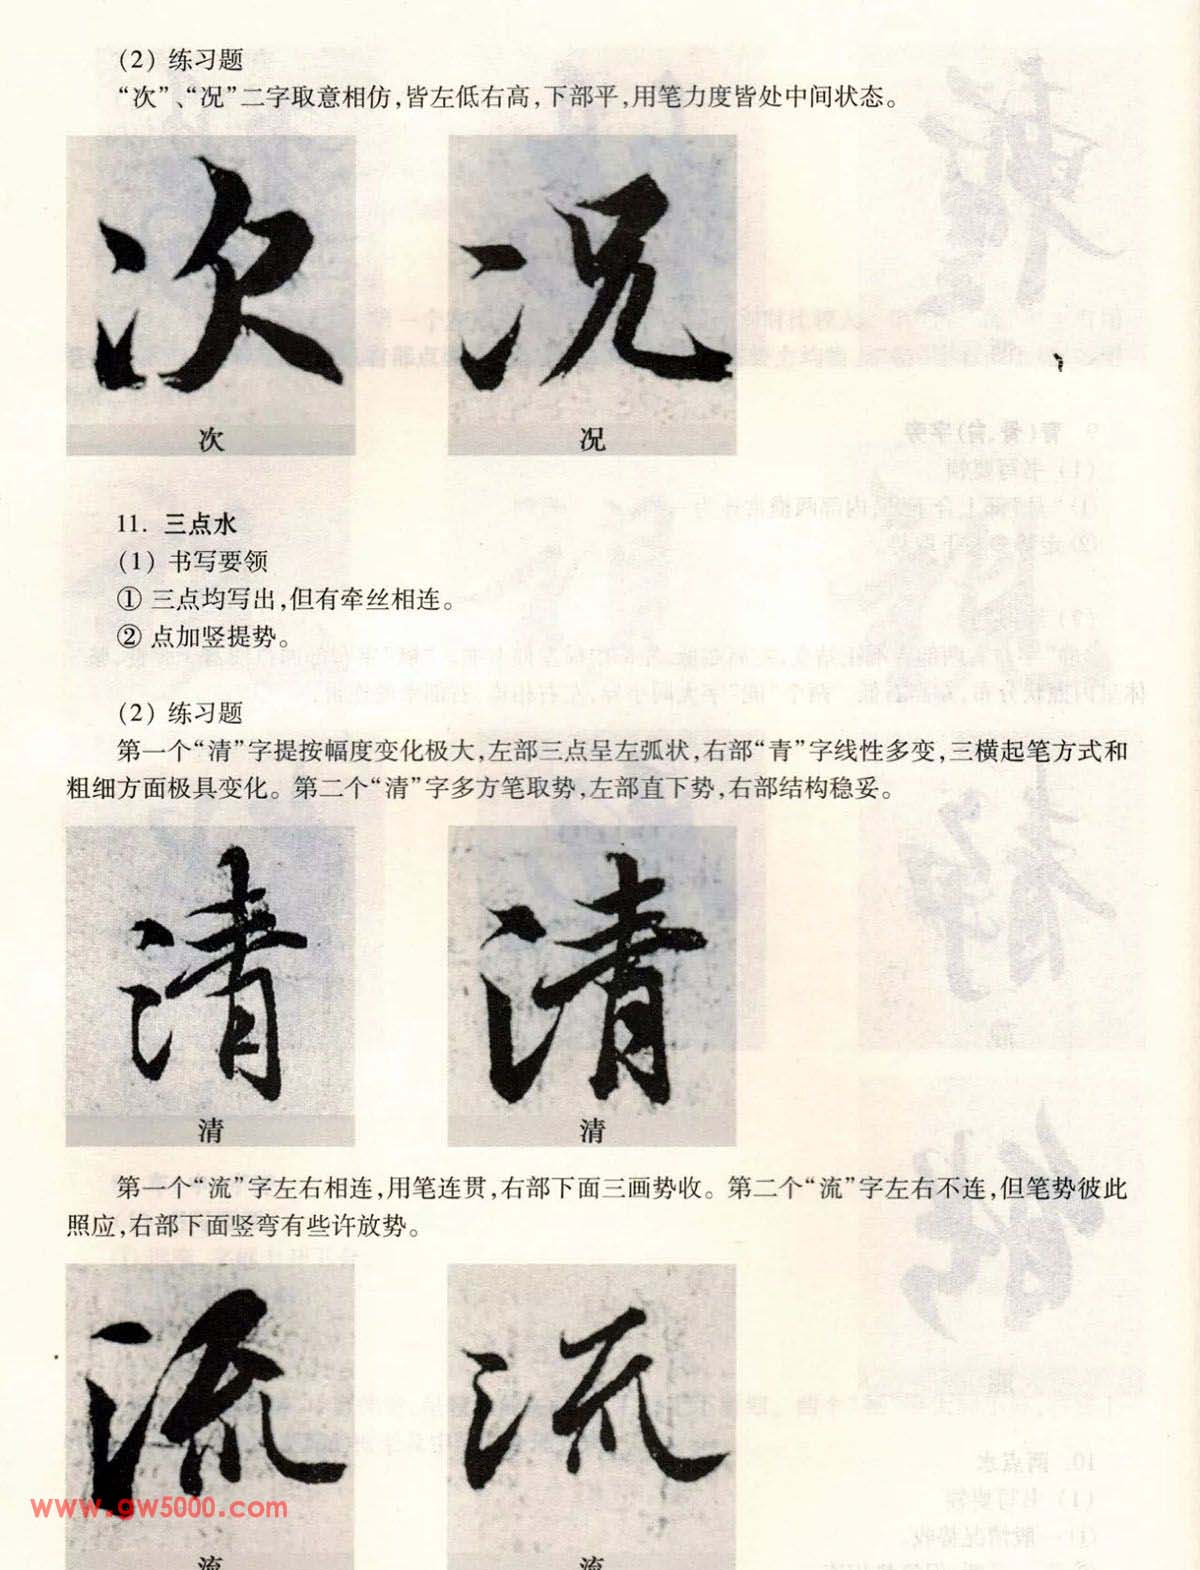 (2) 练习题
“次”、“况”二字取意相仿,皆左低右高,下部平,用笔力度皆处中间状态。
次 况
次 况
11. 三点水
(1) 书写要领
① 三点均写出,但有牵丝相连。
② 点加竖提势。
(2) 练习题
第一个“清”字提按幅度变化极大,左部三点呈左弧状,右部“青”字线性多变,三横起笔方式和
粗细方面极具变化。第二个“清”字多方笔取势,左部直下势,右部结构稳妥。
清 清
清 清
第一个“流”字左右相连,用笔连贯,右部下面三画势收。第二个“流”字左右不连,但笔势彼此
照应,右部下面竖弯有些许放势。
流 流
www.gw5000.com
流 流